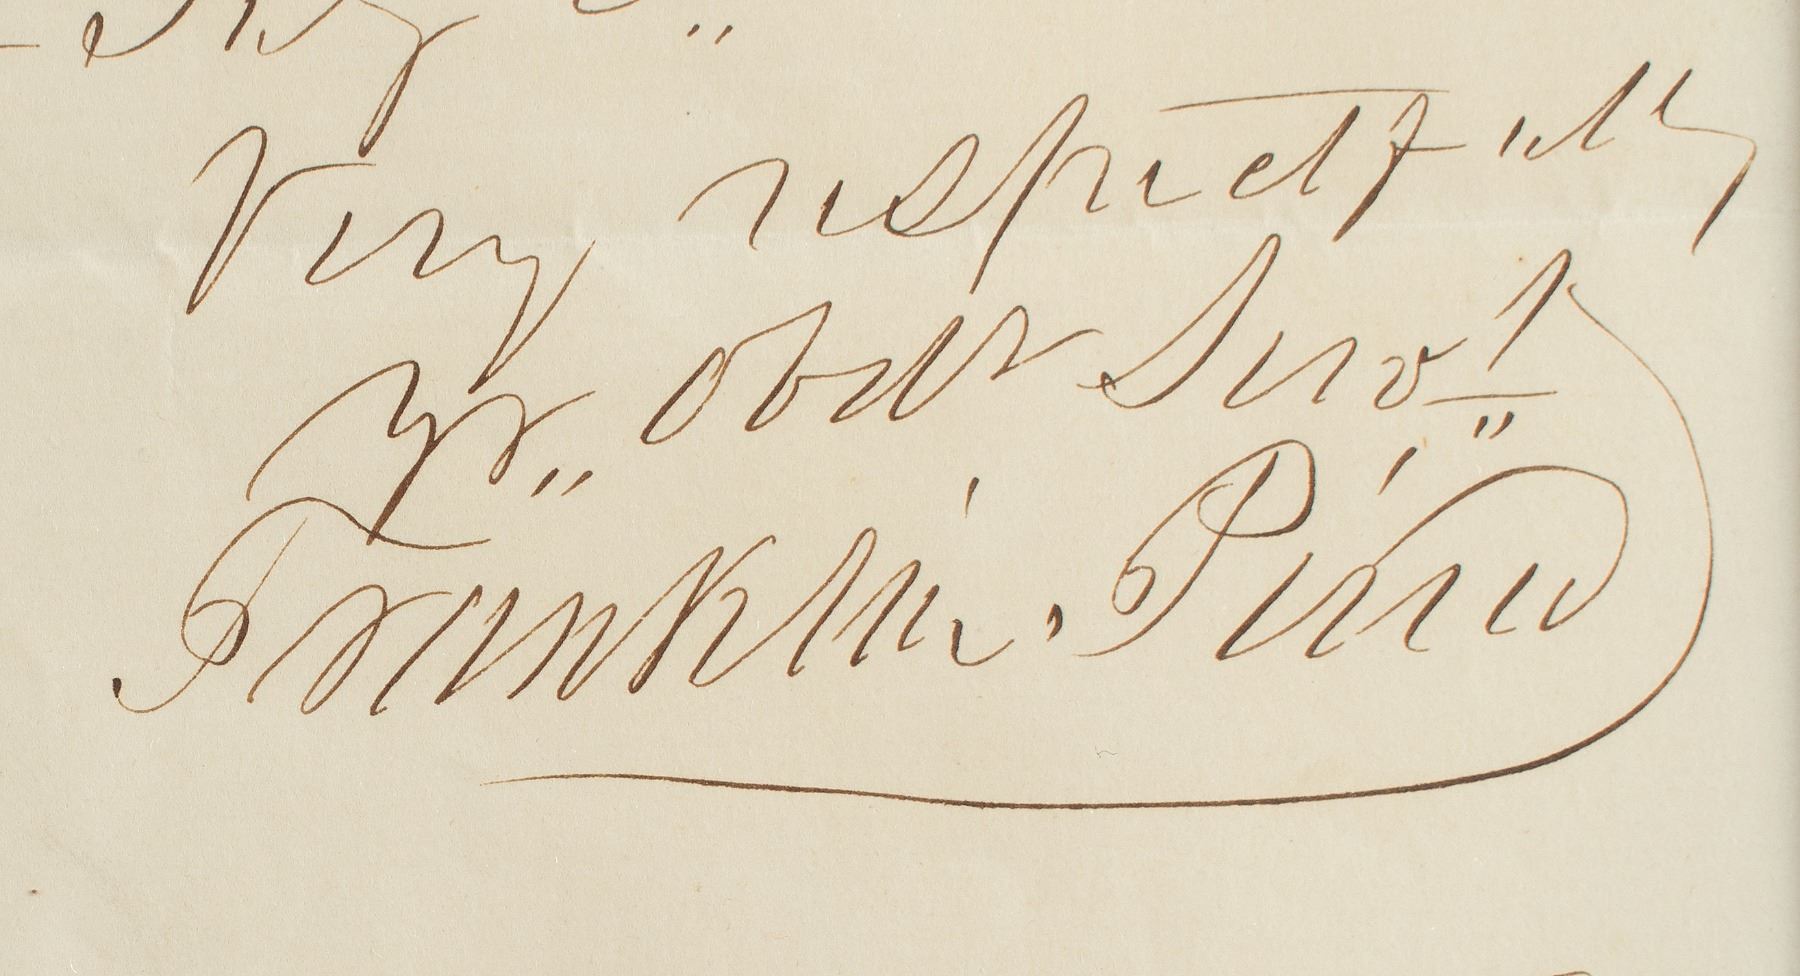 Very respectfully
yr" obdt Servt"
Franklin Pierce